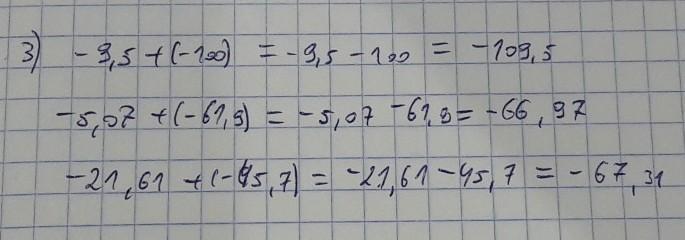 3) -9,5 + (-100) = -9,5 - 100 = -109,5
-5,07 + (-61,9) = -5,07 - 61,9 = -66,97
-21,61 + (-45,7) = -21,61 - 45,7 = -67,31